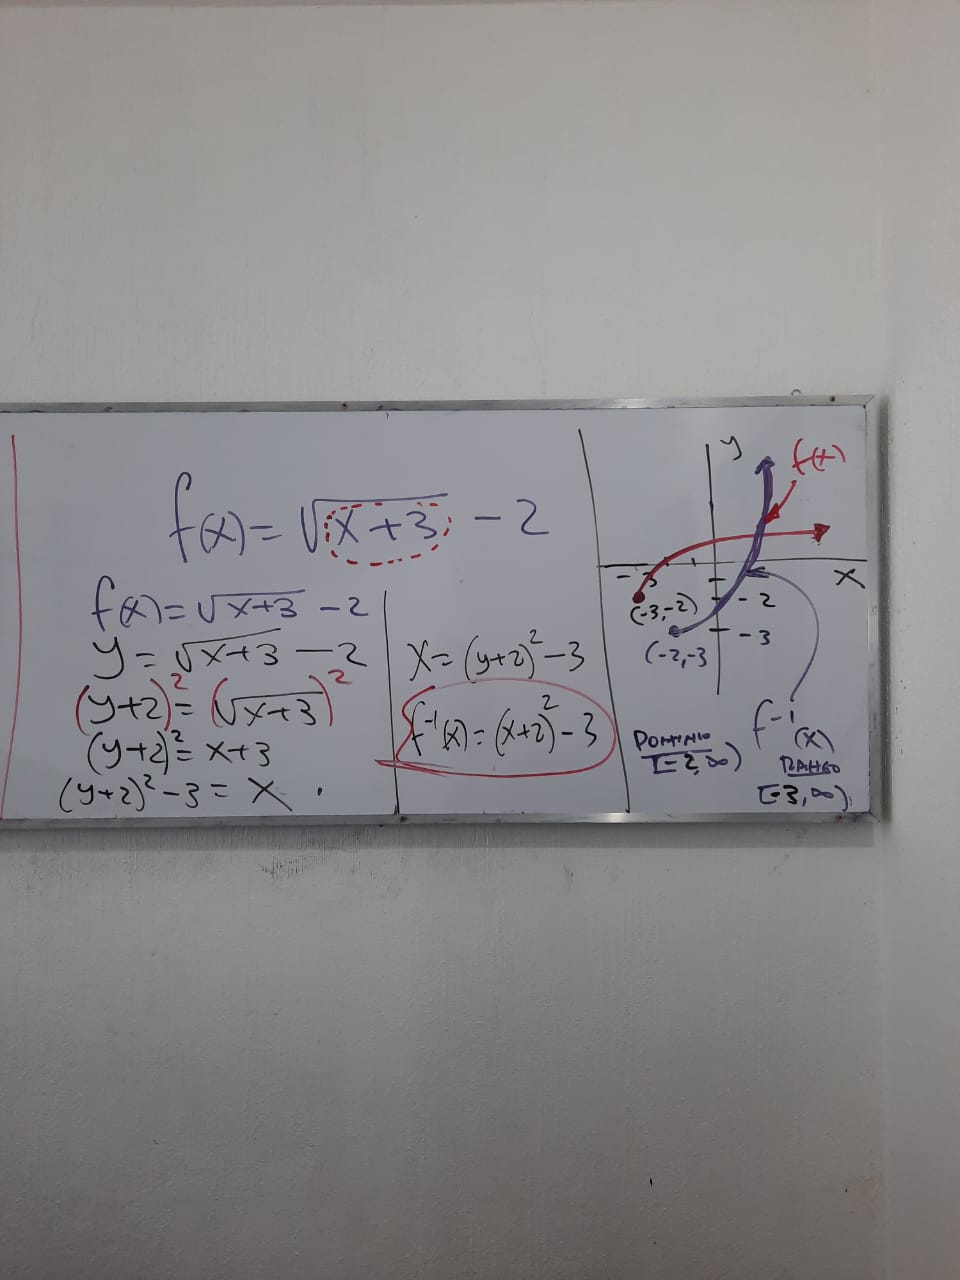 f(x) = √(x+3) - 2
f(x) = √(x+3) - 2
y = √(x+3) - 2
(y+2)² = (√(x+3))²
(y+2)² = x+3
(y+2)² - 3 = x .
x = (y+2)² - 3
f⁻¹(x) = (x+2)² - 3
y
f(x)
x
-3
(-3,-2)
- 2
- 3
(-2,-3
f⁻¹(x)
DOMINIO
[-2,∞)
RANGO
[-3,∞)